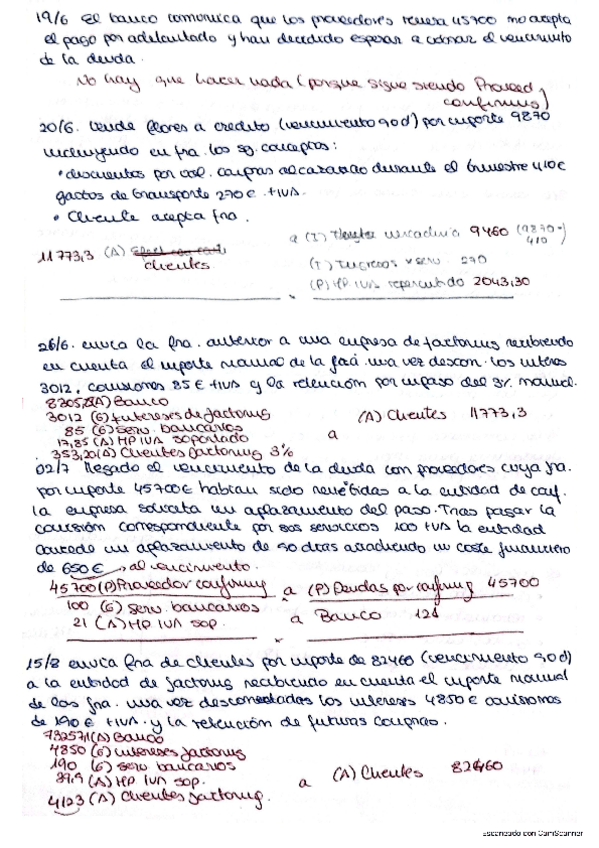 19/6 El banco comunica que los proveedores 45700 no acepta
el pago por adelantado y han decidido esperar a cobrar el vencimiento
de la deuda.
No hay que hacer nada (porque sigue siendo Proveed
confirming)
20/6. Vende flores a credito (vencimiento 90d) por importe 9870
incluyendo en fra. los sg. conceptos:
• descuentos por vol. compras alcanzado durante el trimestre 410€
gastos de transporte 270€ + IVA
• Cliente acepta fra.
11773,3 (A) clientes
a (I) mercaderia 9460 (9870-
410)
(I) Ingresos x serv. 270
(P) HP IVA repercutido 2043,30
26/6. envia la fra. anterior a una empresa de factoring recibiendo
en cuenta el importe nominal de la fra. una vez descon. los interes
3012, comisiones 85€ + IVA y la retención por impago del 3% nominal.
(A) Banco
3012 (G) Intereses de factoring
85 (G) serv. bancarios
17,85 (A) HP IVA soportado
353,20 (A) Clientes factoring 3%
a
(A) Clientes 11773,3
02/7 llegado el vencimiento de la deuda con proveedores cuya fra.
por importe 45700€ habian sido remitidas a la entidad de conf.
la empresa solicita un aplazamiento del pago. Tras pagar la
comisión correspondiente por sus servicios 100 + IVA la entidad
concede un aplazamiento de 90 dias añadiendo un coste financiero
de 650€ → al vencimiento.
45700 (P) Proveedor confirming a (P) Deudas por confirming 45700
100 (G) serv. bancarios
21 (A) HP IVA sop.
a Banco 121
15/8 envia fra de clientes por importe de 82460 (vencimiento 90d)
a la entidad de factoring recibiendo en cuenta el importe nominal
de las fra. una vez descontadas los intereses 4850€ comisiones
de 190€ + IVA y la retención de futuras
(A) Banco
4850 (G) intereses factoring
190 (G) serv bancarios
39,9 (A) HP IVA sop.
4123 (A) Clientes factoring.
a (A) Clientes 82460
Escaneado con CamScanner